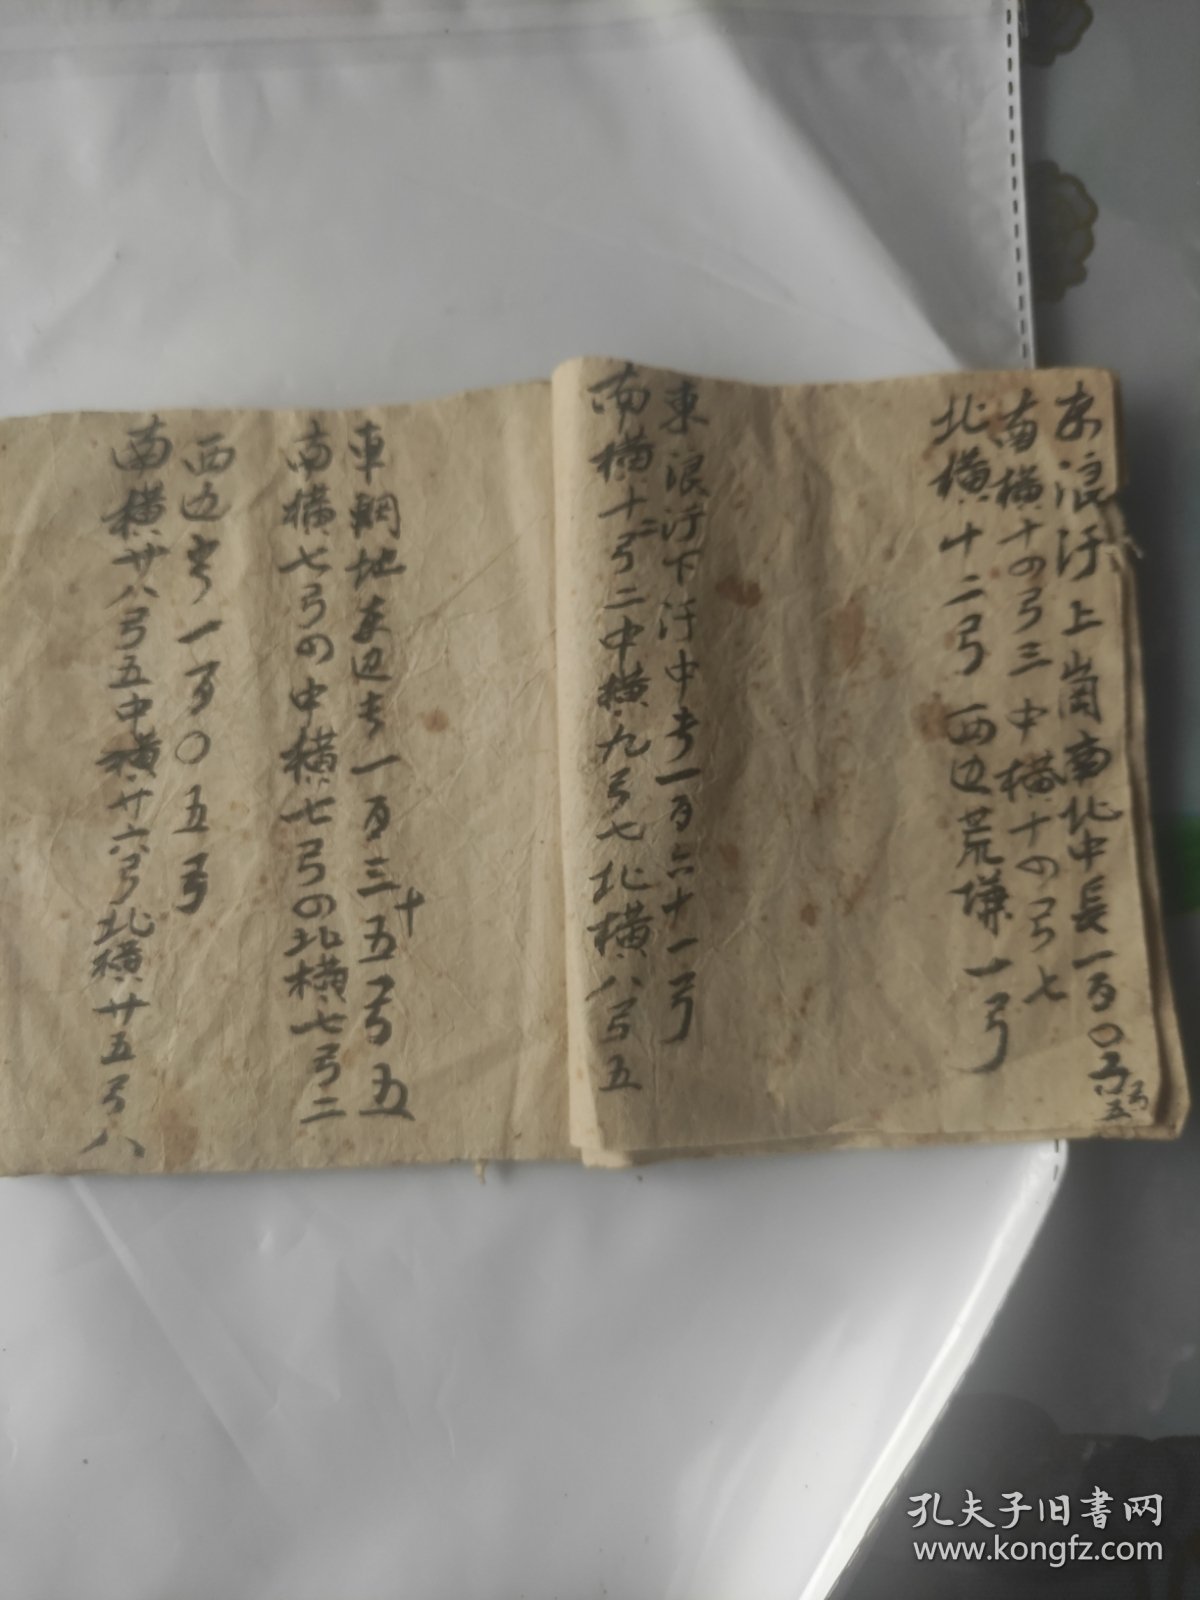 东浪汙上崗南北中長一百〇六弓五
南横十四弓三中横十四弓七
北横十二弓西边荒塐一弓
東浪汙下汙中長一百六十一弓
南横十二弓二中横九弓七北横八弓五
車輞地东边長一百三十五弓五
南横七弓四中横七弓四北横七弓二
西边長一百〇五弓
南横廿八弓五中横廿六弓北横廿五弓八
孔夫子旧書网
www.kongfz.com